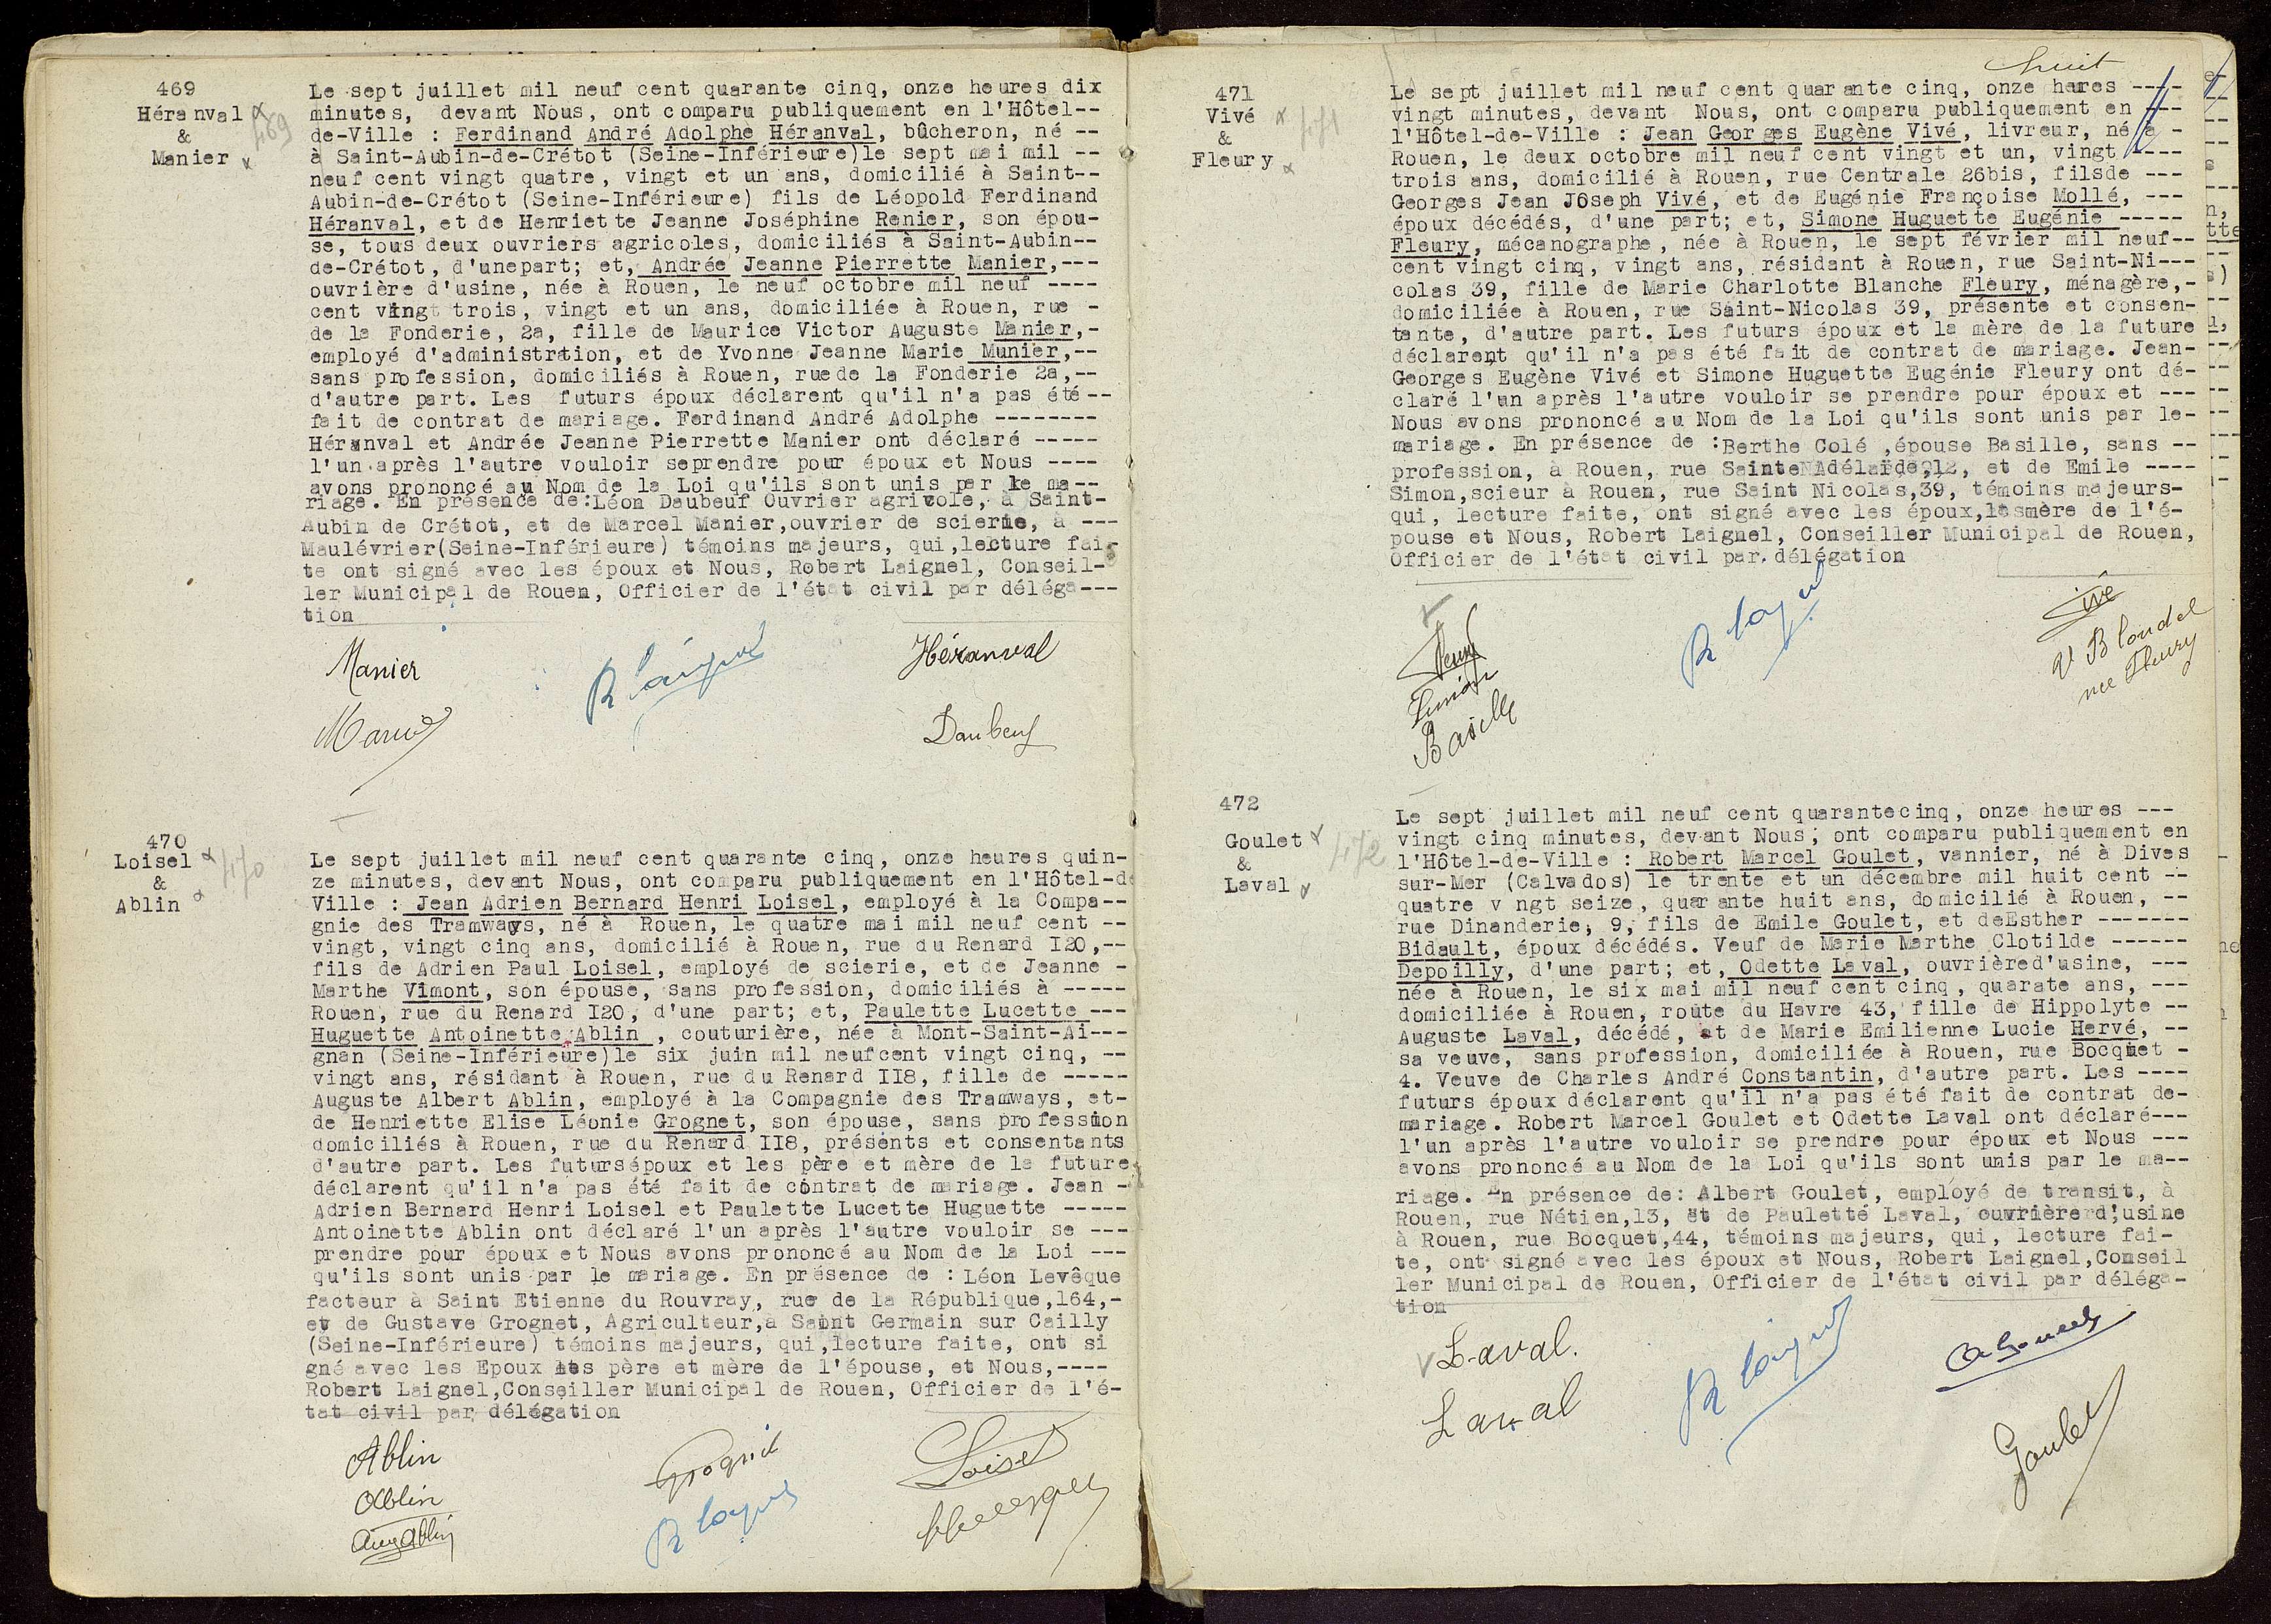 469
Héranval
&
Manier
469
Le sept juillet mil neuf cent quarante cinq, onze heures dix
minutes, devant Nous, ont comparu publiquement en l'Hôtel--
de-Ville : Ferdinand André Adolphe Héranval, bûcheron, né --
à Saint-Aubin-de-Crétot (Seine-Inférieure)le sept mai mil --
neuf cent vingt quatre, vingt et un ans, domicilié à Saint--
Aubin-de-Crétot (Seine-Inférieure) fils de Léopold Ferdinand
Héranval, et de Henriette Jeanne Joséphine Renier, son épou-
se, tous deux ouvriers agricoles, domiciliés à Saint-Aubin--
de-Crétot, d'unepart; et, Andrée Jeanne Pierrette Manier,---
ouvrière d'usine, née à Rouen, le neuf octobre mil neuf ----
cent vingt trois, vingt et un ans, domiciliée à Rouen, rue -
de la Fonderie, 2a, fille de Maurice Victor Auguste Manier,-
employé d'administration, et de Yvonne Jeanne Marie Munier,--
sans profession, domiciliés à Rouen, ruede la Fonderie 2a,--
d'autre part. Les futurs époux déclarent qu'il n'a pas été--
fait de contrat de mariage. Ferdinand André Adolphe --------
Héranval et Andrée Jeanne Pierrette Manier ont déclaré -----
l'un après l'autre vouloir seprendre pour époux et Nous ----
avons prononcé au Nom de la Loi qu'ils sont unis par le ma--
riage. En présence de:Léon Daubeuf Ouvrier agrivole, à Saint-
Aubin de Crétot, et de Marcel Manier,ouvrier de scierie, à ---
Maulévrier(Seine-Inférieure) témoins majeurs, qui,lecture fai-
te ont signé avec les époux et Nous, Robert Laignel, Conseil-
ler Municipal de Rouen, Officier de l'état civil par déléga---
tion
Manier
R Laignel
Héranval
Manier
Daubeuf
470
Loisel
&
Ablin
470
Le sept juillet mil neuf cent quarante cinq, onze heures quin-
ze minutes, devant Nous, ont comparu publiquement en l'Hôtel-de
Ville : Jean Adrien Bernard Henri Loisel, employé à la Compa--
gnie des Tramways, né à Rouen, le quatre mai mil neuf cent --
vingt, vingt cinq ans, domicilié à Rouen, rue du Renard I20,--
fils de Adrien Paul Loisel, employé de scierie, et de Jeanne -
Marthe Vimont, son épouse, sans profession, domiciliés à -----
Rouen, rue du Renard I20, d'une part; et, Paulette Lucette ---
Huguette Antoinette Ablin , couturière, née à Mont-Saint-Ai---
gnan (Seine-Inférieure)le six juin mil neufcent vingt cinq, --
vingt ans, résidant à Rouen, rue du Renard II8, fille de -----
Auguste Albert Ablin, employé à la Compagnie des Tramways, et-
de Henriette Elise Léonie Grognet, son épouse, sans profession
domiciliés à Rouen, rue du Renard II8, présents et consentants
d'autre part. Les futursépoux et les père et mère de la future
déclarent qu'il n'a pas été fait de contrat de mariage. Jean -
Adrien Bernard Henri Loisel et Paulette Lucette Huguette -----
Antoinette Ablin ont déclaré l'un après l'autre vouloir se ---
prendre pour époux et Nous avons prononcé au Nom de la Loi ---
qu'ils sont unis par le mariage. En présence de : Léon Levêque
facteur à Saint Etienne du Rouvray, rue de la République,164,-
et de Gustave Grognet, Agriculteur,à Saint Germain sur Cailly
(Seine-Inférieure) témoins majeurs, qui,lecture faite, ont si
gné avec les Epoux les père et mère de l'épouse, et Nous,----
Robert Laignel,Conseiller Municipal de Rouen, Officier de l'é-
tat civil par délégation
Ablin
Grognet
Loisel
Ablin
R Laignel
Aug Ablin
471
Vivé
&
Fleury
471
huit
Le sept juillet mil neuf cent quarante cinq, onze heures ----
vingt minutes, devant Nous, ont comparu publiquement en ---
l'Hôtel-de-Ville : Jean Georges Eugène Vivé, livreur, né à -
Rouen, le deux octobre mil neuf cent vingt et un, vingt ----
trois ans, domicilié à Rouen, rue Centrale 26bis, filsde ---
Georges Jean Jôseph Vivé, et de Eugénie Françoise Mollé, ---
époux décédés, d'une part; et, Simone Huguette Eugénie -----
Fleury, mécanographe, née à Rouen, le sept février mil neuf--
cent vingt cinq, vingt ans, résidant à Rouen, rue Saint-Ni---
colas 39, fille de Marie Charlotte Blanche Fleury, ménagère,-
domiciliée à Rouen, rue Saint-Nicolas 39, présente et consen-
tante, d'autre part. Les futurs époux et la mère de la future
déclarent qu'il n'a pas été fait de contrat de mariage. Jean-
Georges Eugène Vivé et Simone Huguette Eugénie Fleury ont dé-
claré l'un après l'autre vouloir se prendre pour époux et ---
Nous avons prononcé au Nom de la Loi qu'ils sont unis par le-
mariage. En présence de :Berthe Colé ,épouse Basille, sans --
profession, à Rouen, rue Sainte Adélaïde,12, et de Emile ----
Simon,scieur à Rouen, rue Saint Nicolas,39, témoins majeurs-
qui, lecture faite, ont signé avec les époux,lasmère de l'é-
pouse et Nous, Robert Laignel, Conseiller Municipal de Rouen,
Officier de l'état civil par délégation
Fleury
R Laignel
Vivé
Simon
Vt Blondel
née Fleury
Basille
472
Goulet
&
Laval
472
Le sept juillet mil neuf cent quarantecinq, onze heures ---
vingt cinq minutes, devant Nous; ont comparu publiquement en
l'Hôtel-de-Ville : Robert Marcel Goulet, vannier, né à Dives
sur-Mer (Calvados) le trente et un décembre mil huit cent --
quatre v ngt seize, quarante huit ans, domicilié à Rouen, --
rue Dinanderie, 9, fils de Emile Goulet, et deEsther -------
Bidault, époux décédés. Veuf de Marie Marthe Clotilde ------
Depoilly, d'une part; et, Odette Laval, ouvrièred'usine, ---
née à Rouen, le six mai mil neuf cent cinq, quarate ans, ---
domiciliée à Rouen, route du Havre 43, fille de Hippolyte --
Auguste Laval, décédé, et de Marie Emilienne Lucie Hervé, --
sa veuve, sans profession, domiciliée à Rouen, rue Bocquet -
4. Veuve de Charles André Constantin, d'autre part. Les ----
futurs époux déclarent qu'il n'a pas été fait de contrat de-
mariage. Robert Marcel Goulet et Odette Laval ont déclaré---
l'un après l'autre vouloir se prendre pour époux et Nous ---
avons prononcé au Nom de la Loi qu'ils sont unis par le ma--
riage. En présence de: Albert Goulet, employé de transit, à
Rouen, rue Nétien,13, et de Paulette Laval, ouvrière d'usine
à Rouen, rue Bocquet,44, témoins majeurs, qui, lecture fai-
te, ont signé avec les époux et Nous, Robert Laignel,Conseil
ler Municipal de Rouen, Officier de l'état civil par déléga-
tion
Laval.
R Laignel
Laval
Goulet